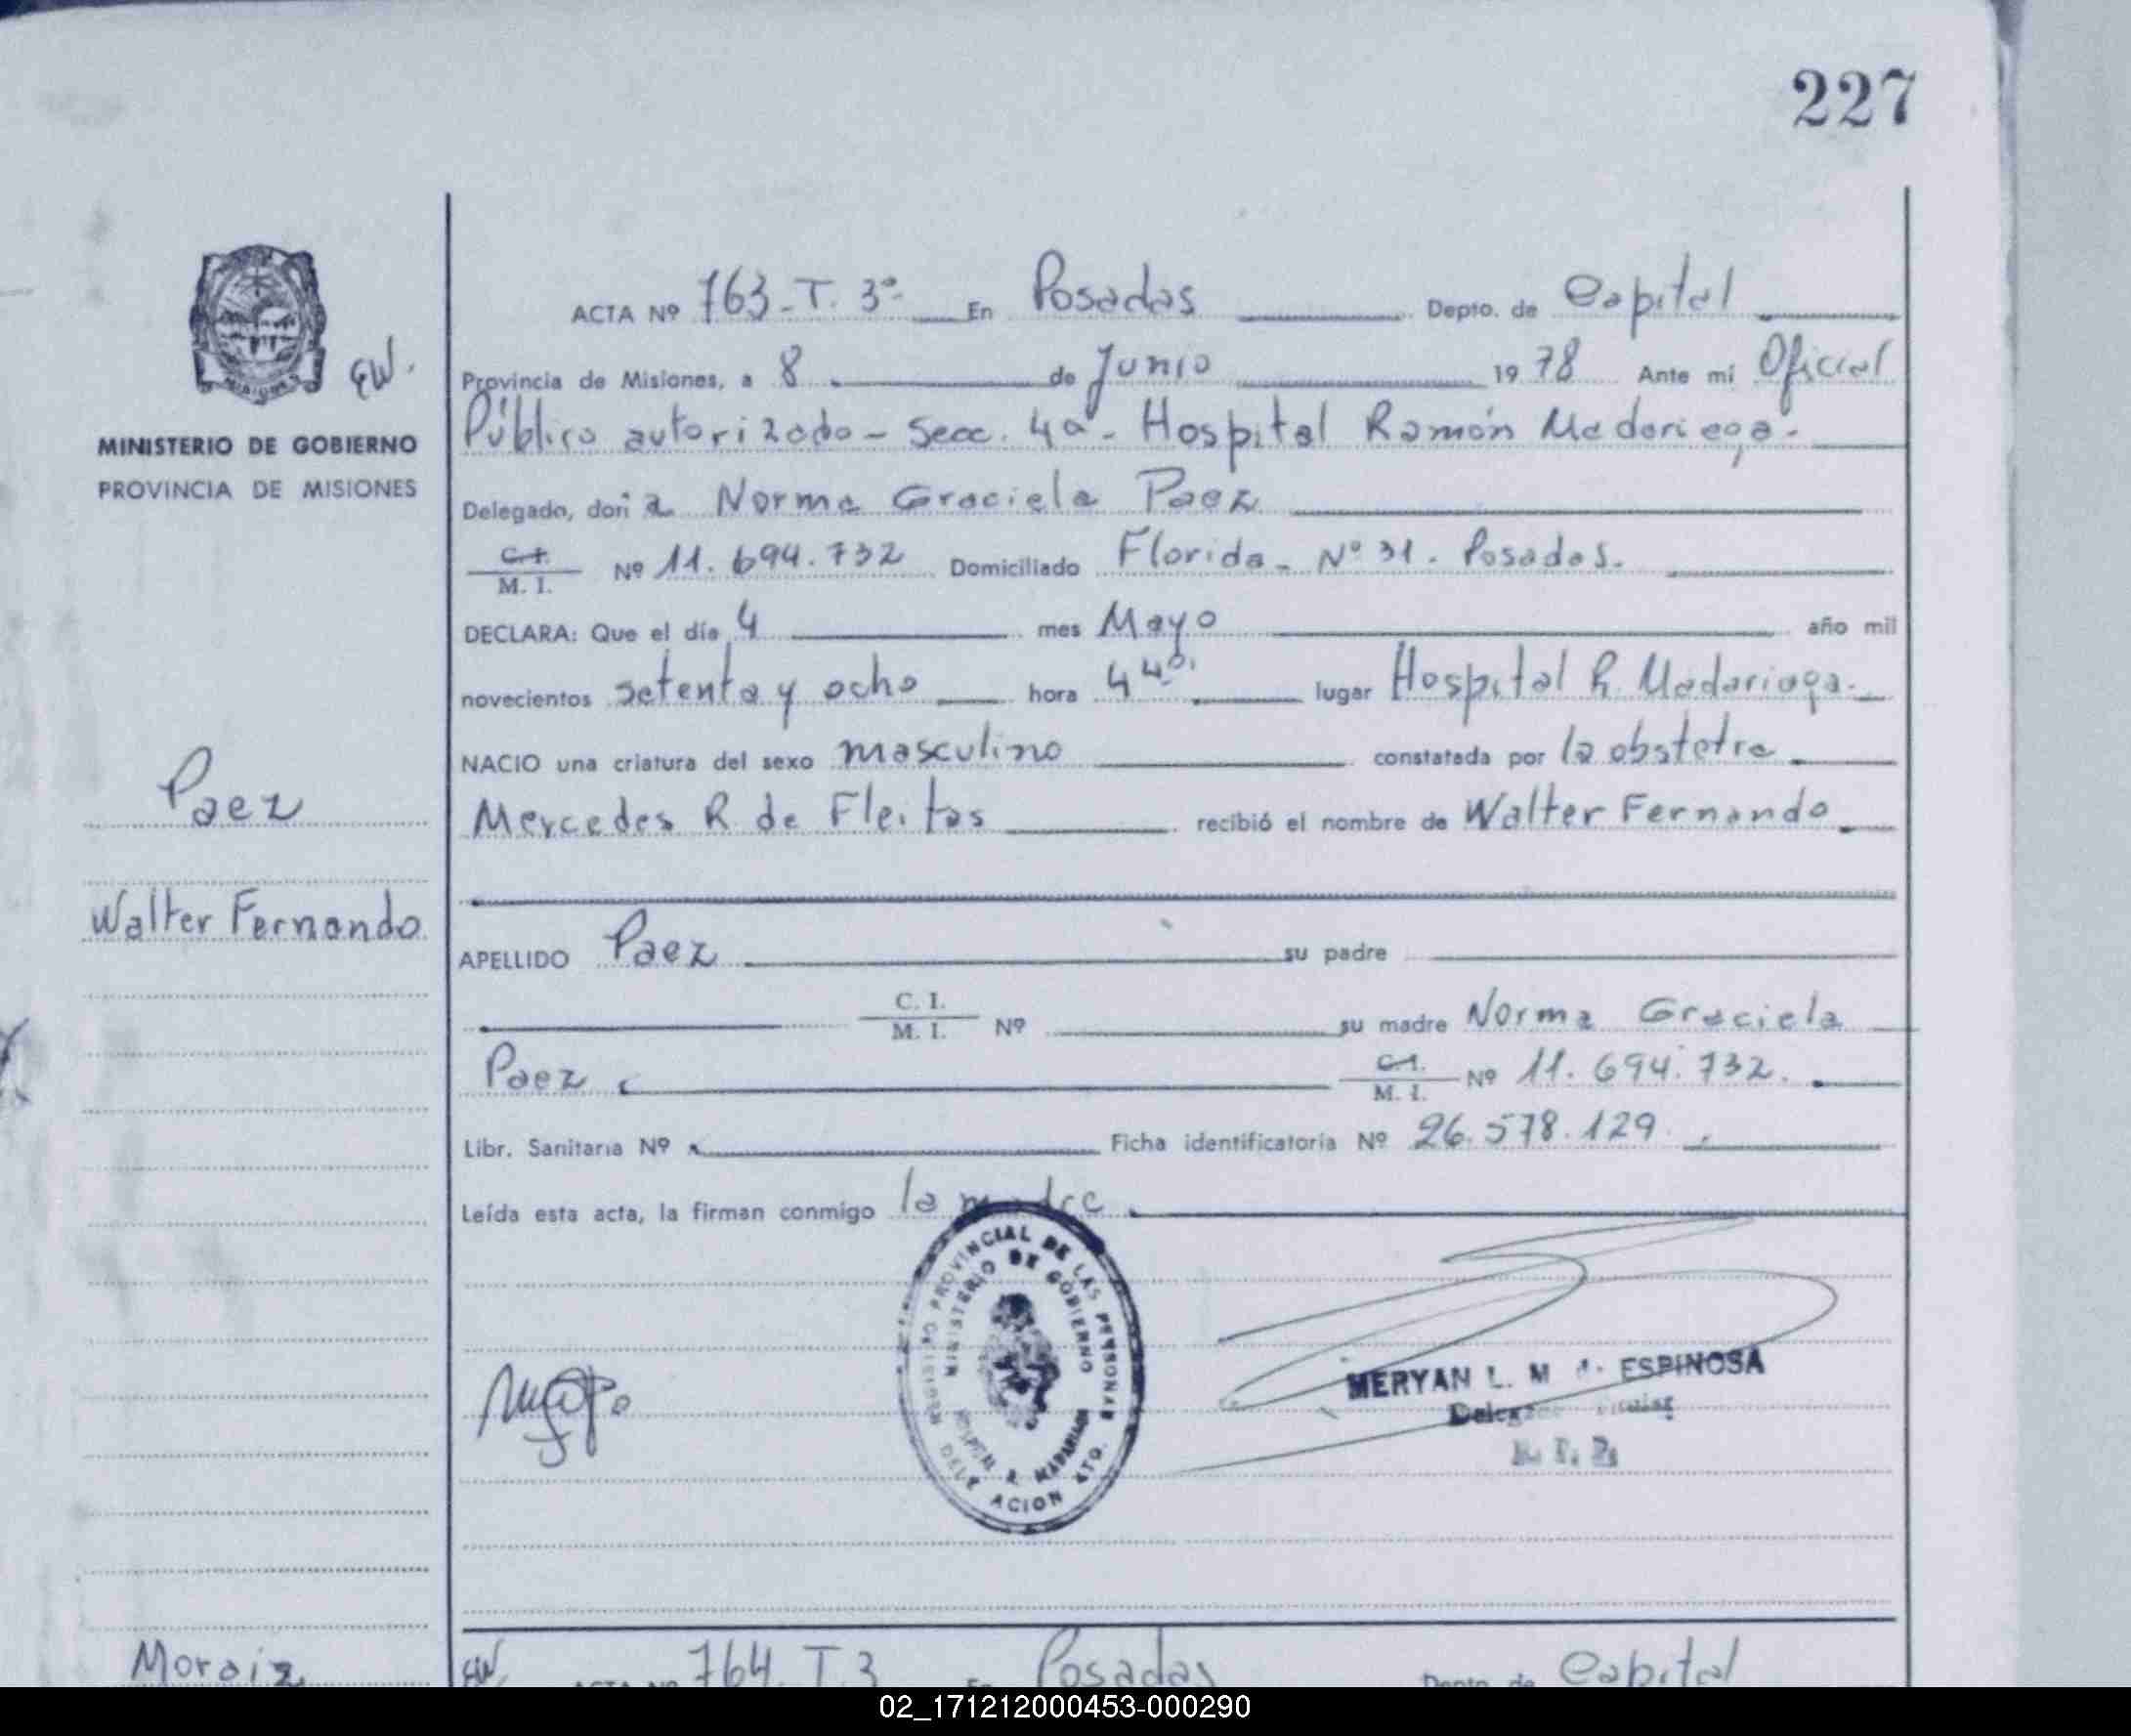 227
ACTA Nº 763-T. 3º- En Posadas Depto. de Capital
EW.
Provincia de Misiones, a 8 de Junio 1978 Ante mí Oficial
MINISTERIO DE GOBIERNO
PROVINCIA DE MISIONES
Público autorizado - Secc. 4ª - Hospital Ramón Madariaga.-
Delegado, doña Norma Graciela Paez
C. I.
M. I. Nº 11.694.732 Domiciliado Florida - Nº 31. Posadas.
DECLARA: Que el día 4 mes Mayo año mil
novecientos setenta y ocho hora 4 40. lugar Hospital R. Madariaga.
NACIO una criatura del sexo masculino constatada por la obstetra
Paez
Mercedes R de Fleitas recibió el nombre de Walter Fernando
Walter Fernando
APELLIDO Paez su padre
C. I.
M. I. Nº su madre Norma Graciela
Paez C. I.
M. I. Nº 11.694.732.
Libr. Sanitaria Nº Ficha identificatoria Nº 26.578.129.
Leída esta acta, la firman conmigo la madre
REGISTRO PROVINCIAL DE LAS PERSONAS
MINISTERIO DE GOBIERNO
HOSPITAL R. MADARIAGA
MERYAN L. M ESPINOSA
Moraiz
EW. ACTA Nº 764 T 3 En Posadas Depto de Capital
02_171212000453-000290